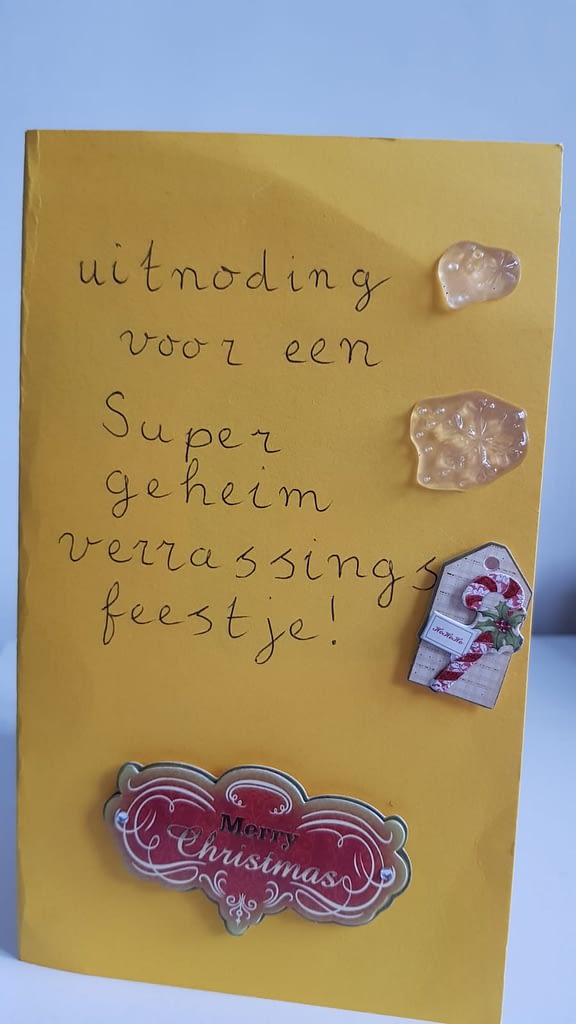 uitnoding
voor een
Super
geheim
verrassings
feestje!
HoHoHo
Merry
Christmas